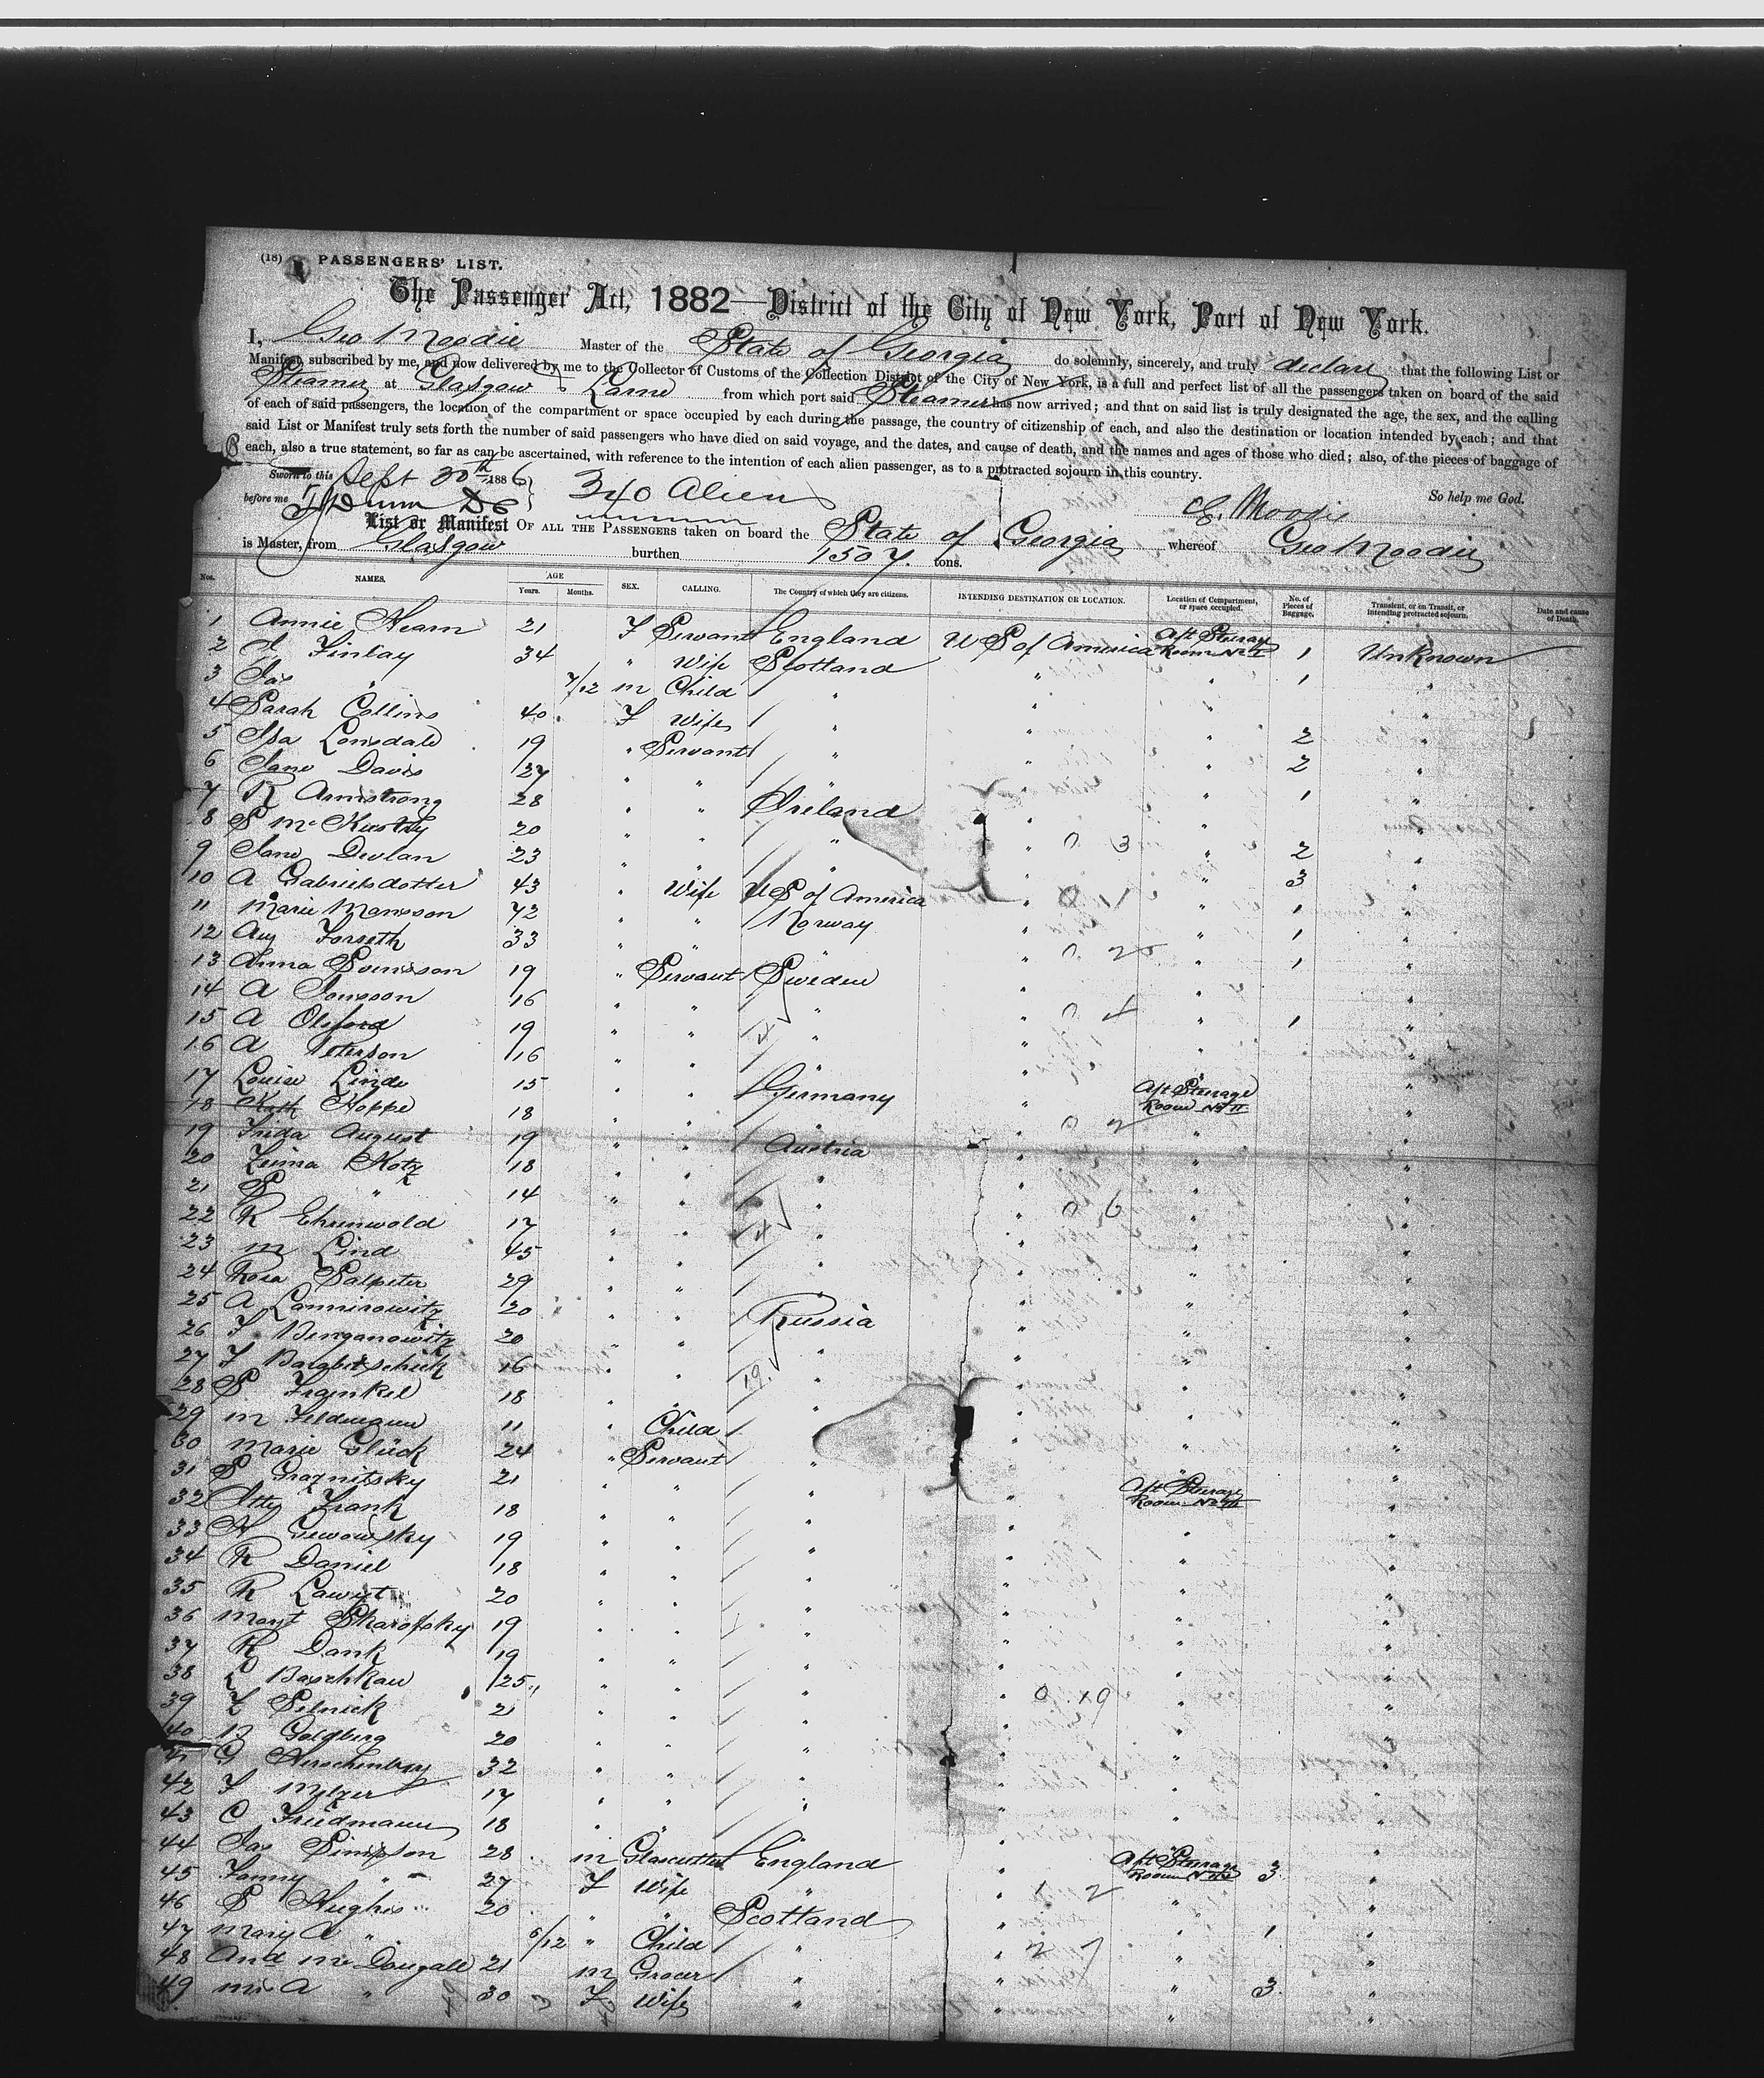 (18) PASSENGERS' LIST.
The Passenger Act, 1882—District of the City of New York, Port of New York.
I, Geo Moodie Master of the State of Georgia do solemnly, sincerely, and truly declare that the following List or
Manifest, subscribed by me, and now delivered by me to the Collector of Customs of the Collection District of the City of New York, is a full and perfect list of all the passengers taken on board of the said
Steamer at Glasgow & Larne from which port said Steamer has now arrived; and that on said list is truly designated the age, the sex, and the calling
of each of said passengers, the location of the compartment or space occupied by each during the passage, the country of citizenship of each, and also the destination or location intended by each; and that
said List or Manifest truly sets forth the number of said passengers who have died on said voyage, and the dates, and cause of death, and the names and ages of those who died; also, of the pieces of baggage of
each, also a true statement, so far as can be ascertained, with reference to the intention of each alien passenger, as to a protracted sojourn in this country.
Sworn to this Sept 30th 1886 340 Aliens So help me God.
before me Dunn DC G. Moodie
List or Manifest OF ALL THE PASSENGERS taken on board the State of Georgia whereof Geo Moodie
is Master, from Glasgow burthen 1507. tons.
Nos. NAMES. AGE Years. Months. SEX. CALLING. The Country of which they are citizens. INTENDING DESTINATION OR LOCATION. Location of Compartment, or space occupied. No. of Pieces of Baggage. Transient, or in Transit, or intending protracted sojourn. Date and cause of Death.
1 Annie Hearn 21 F Servant England U S of America Aft Steerage Room No I 1 Unknown
2 Finlay 34 " Wife Scotland " " 1 "
3 Jas " 7/12 m Child " " " "
4 Sarah Collins 40 F Wife " " " 2 "
5 Isa Lonsdale 19 " Servant " " " 2 "
6 Jane Davis 27 " " " " " 1 "
7 R Armstrong 28 " " Ireland " " "
8 S 20 " " " " " 2 "
9 Jane Devlan 23 " " " " 0 3 " 3 "
10 A Gabrielsdotter 43 " Wife U S of America " " 1 "
11 Marie Mansson 72 " " Norway " " 1 "
12 Aug Forseth 33 " " " " " 1 "
13 Anna Svensson 19 " Servant Sweden " " "
14 A Jonsson 16 " " " " " 1 "
15 A 19 " " " " " "
16 A Peterson 16 " " " " " "
17 Louise Linde 15 " " Germany " Aft Steerage Room No II "
18 Kath Hoppe 18 " " " " 0 2 " "
19 Frida August 19 " " Austria " " "
20 Kotz 18 " " " " " "
21 S " 14 " " " " 0 6 " "
22 R Ehrenwold 17 " " " " " "
23 m Lind 45 " " " " " "
24 Rosa Salpeter 29 " " " " " "
25 A 20 " " Russia " " "
26 F 20 " " " " " "
27 F 16 " " " " " "
28 S Frankel 18 " " " " " "
29 m Feldmann 11 " Child " " " "
30 Marie Glück 24 " Servant " " " "
31 S Graznitsky 21 " " " " Aft Steerage Room "
32 Frank 18 " " " " " "
33 19 " " " " " "
34 R Daniel 18 " " " " " "
35 R 20 " " " " " "
36 Skarofsky 19 " " " " " "
37 R Dank 19 " " " " " "
38 L Baschkau 25 " " " " 0 19 " "
39 Z Selnick 21 " " " " " "
40 B Goldberg 20 " " " " " "
41 G Herschenberg 32 " " " " " "
42 F 17 " " " " " "
43 C Friedmann 18 " " " " " "
44 Jas Simpson 28 m Glasscutter England " Aft Steerage Room 3 "
45 Fanny " 27 F Wife " " " "
46 S Hughes 20 " " Scotland " " 1 "
47 Mary A " 6/12 " Child " " " "
48 And McDougall 21 m Grocer " " " 3 "
49 Mrs A " 30 F Wife " " " "